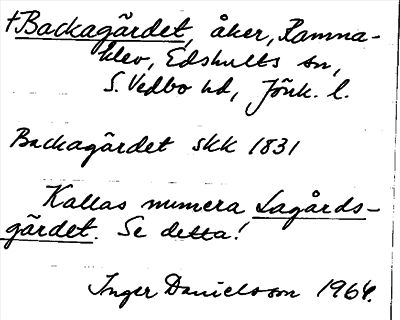 †Backagärdet, åker, Ramna-
klev, Edshults sn,
S. Vedbo hd, Jönk. l.
Backagärdet skk 1831
Kallas numera Lagårds-
gärdet. Se detta!
Inger Danielsson 1964.